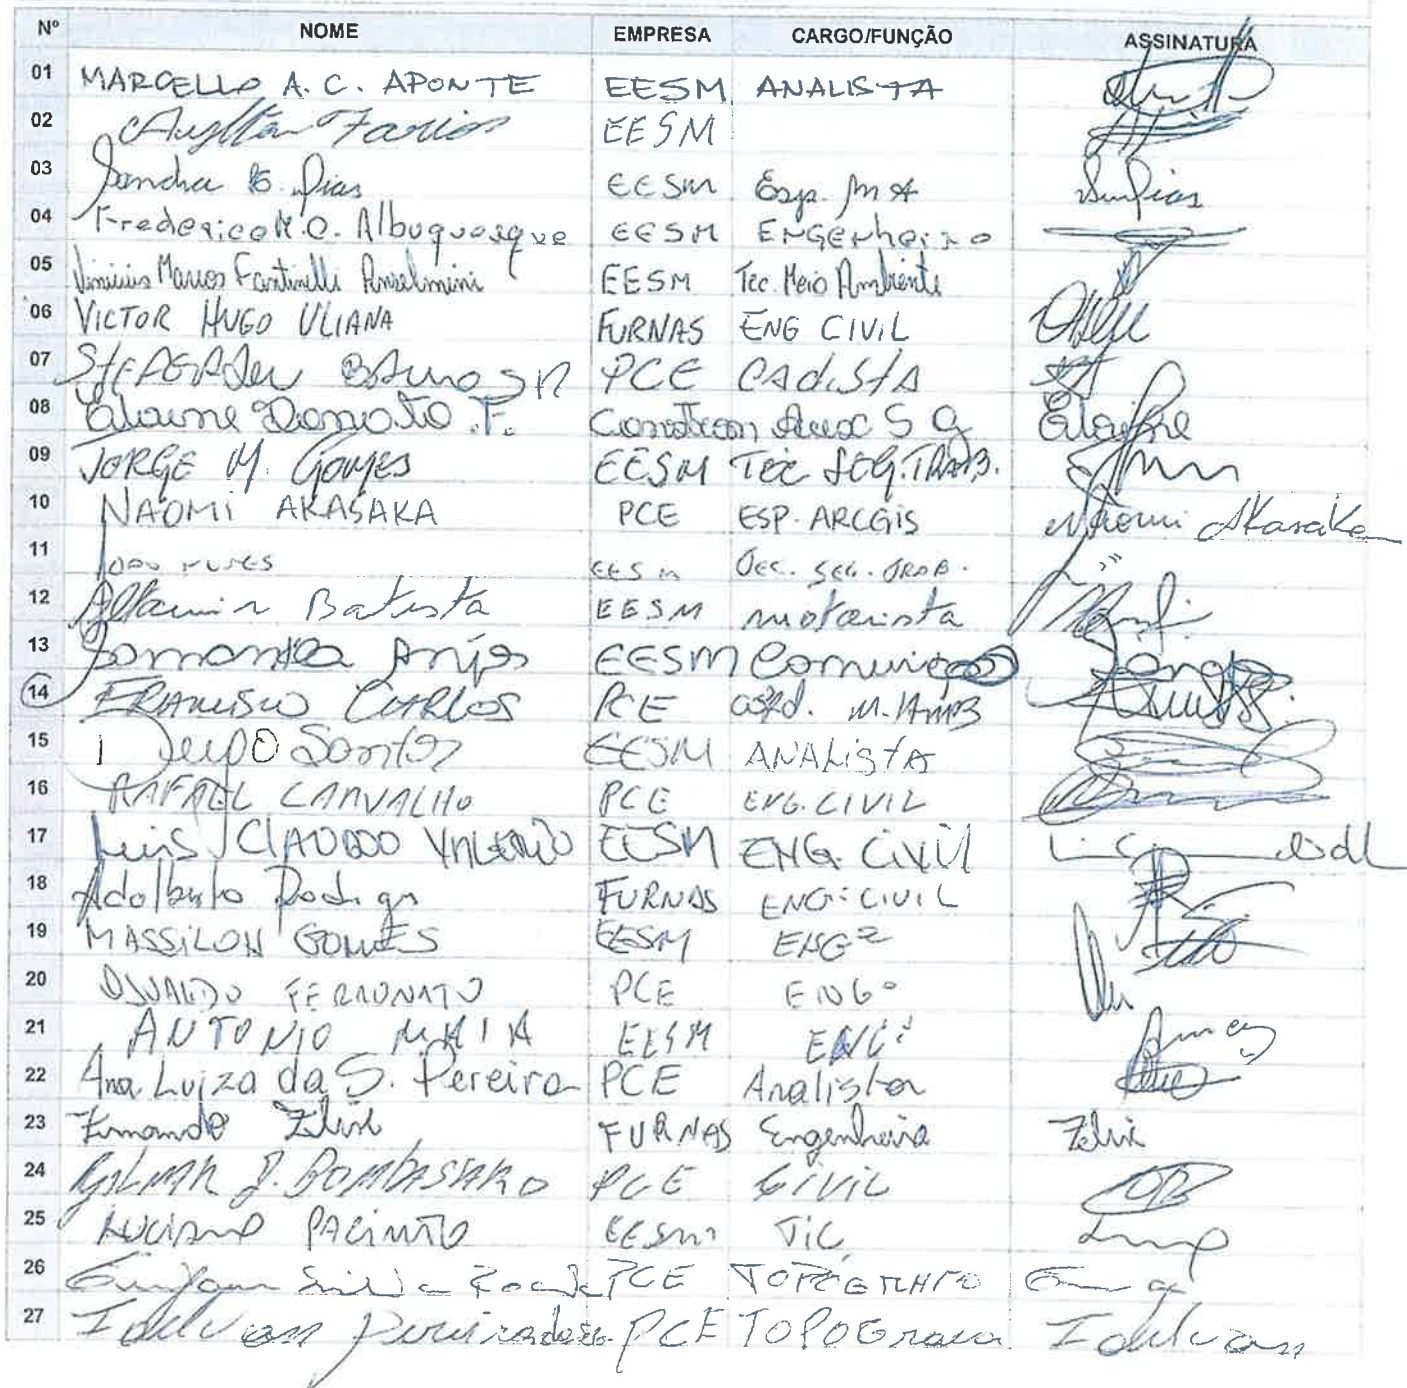 Nº NOME EMPRESA CARGO/FUNÇÃO ASSINATURA
01 MARCELLO A. C. APONTE EESM ANALISTA
02 Farias EESM
03 Sandra B. Dias EESM Esp. MA
04 Frederico M. O. Albuquerque EESM Engenheiro
05 Vinicius Marcos Fantinelli Anselmini EESM Tec. Meio Ambiente
06 VICTOR HUGO ULIANA FURNAS ENG CIVIL
07 PCE CAdistA
08 Elaine Donato F. Aux S G Elaine
09 JORGE M. GOMES EESM TEC SEG. TRAB.
10 NAOMI AKASAKA PCE ESP. ARCGIS Naomi Akasaka
11 JOÃO NUNES EESM TEC. SEG. TRAB.
12 Altamir Batista EESM motorista
13 Samantha Anjos EESM
14 FRANCISCO CARLOS PCE Coord. M. AMB
15 Diego Santos EESM ANALISTA
16 RAFAEL CARVALHO PCE ENG. CIVIL
17 Luis CLAUDIO VALERIO EESM ENG. CIVIL
18 Adalberto Rodrigs FURNAS ENG: CIVIL
19 MASSILON GOMES EESM ENGº
20 OSVALDO FERRONATO PCE ENGº
21 ANTONIO MAIA EESM ENGº
22 Ana Luiza da S. Pereira PCE Analista
23 Fernando Felix FURNAS Engenharia Felix
24 GILMAR J. BOMBASSARO PCE CIVIL
25 LUCIANO PACINTO EESM TIC
26 PCE TOPOGRAFO
27 Idelvan PCE Idelvan